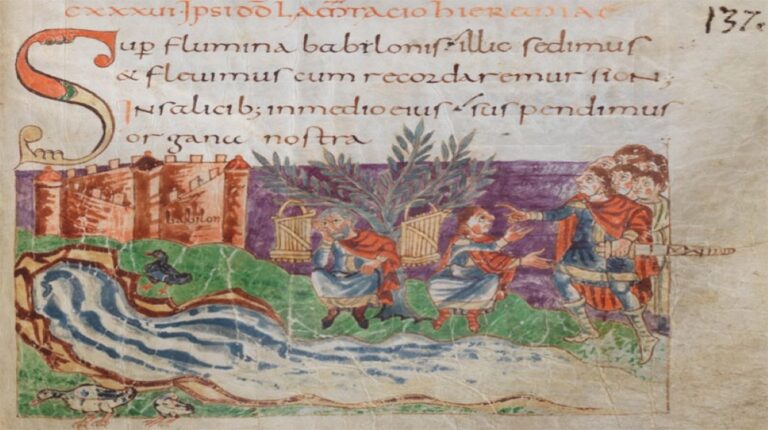 CXXXVI IPSI DD LAMTACIO HIEREMIAE
137.
Sup flumina babilonis. illic sedimus
& fleuimus cum recordaremur sion;
IN salicib; in medio eius. suspendimus
organa nostra
babilon